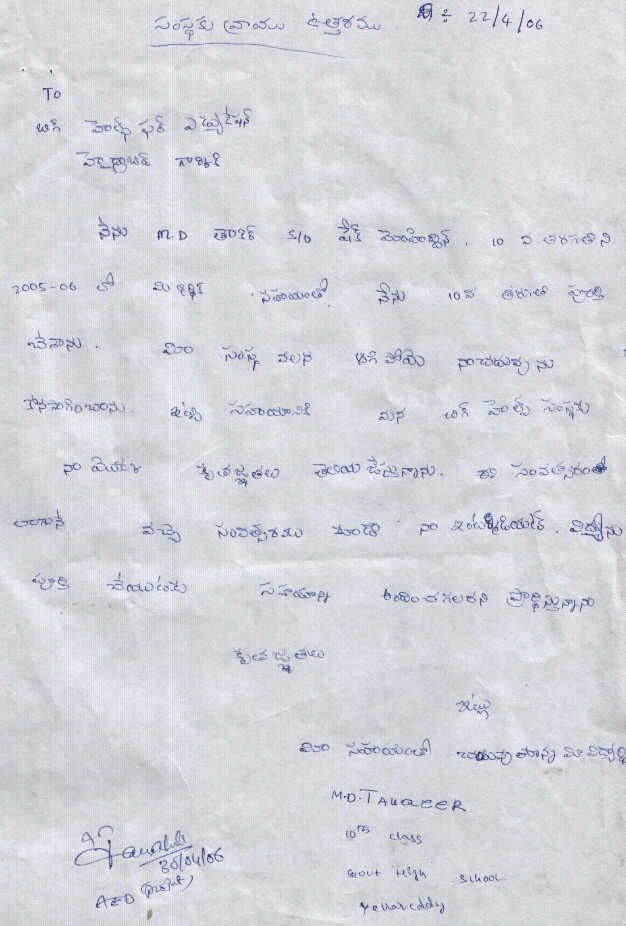 సంస్థకు వ్రాయు ఉత్తరము ది ÷ 22/4/06
To
బిగ్ హెల్ప్ ఫర్ ఎడ్యుకేషన్
హైద్రాబాద్ గారికి
నేను M.D తాహేర్ S/O షేక్ మొహియుద్దిన్. 10 వ తరగతిని
2005-06 లో మీ ఆర్థిక సహాయంతో నేను 10వ తరగతి పూర్తి
చేసాను. మీరు సంస్థ వలన ఆగి పోయె నాచదువును
కొనసాగించాను. ఇట్టి సహాయానికి మన బిగ్ హెల్ప్ సంస్థకు
నా కృతజ్ఞతలు తెలియ జేస్తున్నాను. ఈ సంవత్సరంతో
బాటునే వచ్చె సంవత్సరము కూడా నా ఇంటర్మీడియట్. విద్యను
పూర్తి చేయుటకు సహాయాన్ని అందించగలరని ప్రార్థిస్తున్నాను
కృతజ్ఞతలు
ఇట్లు
మీరు సహాయంతో చదువుతూన్న మీ విద్యార్థి
M.D. TAHAEER
10th class
Govt High School
Yellareddy
30/04/06